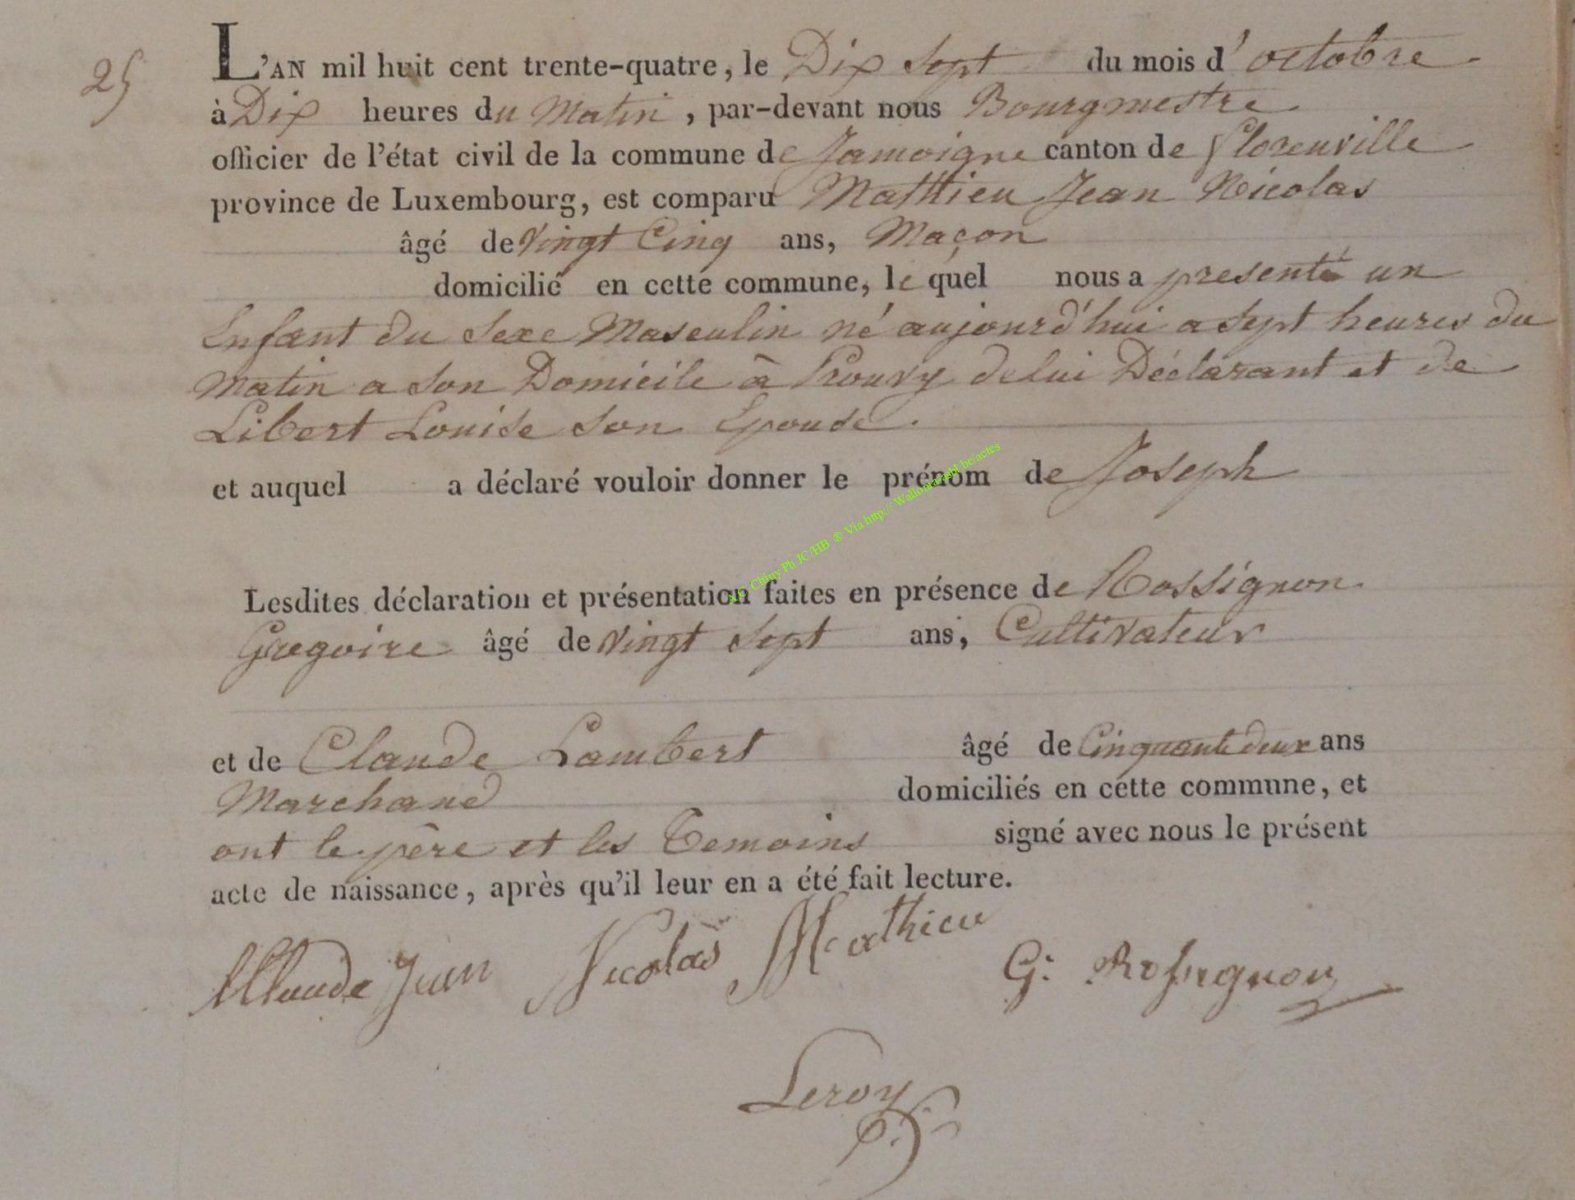 25
L'AN mil huit cent trente-quatre, le Dix Sept du mois d'octobre
à Dix heures du Matin, par-devant nous Bourgmestre
officier de l'état civil de la commune de Jamoigne canton de Florenville
province de Luxembourg, est comparu Matthieu Jean Nicolas
âgé de Vingt Cinq ans, Maçon
domicilié en cette commune, le quel nous a presenté un
Enfant du Sexe Masculin né aujourd'hui a Sept heures du
Matin a Son Domicile à Prouvy de lui Déclarant et de
Libert Louise Son Epouse.
et auquel a déclaré vouloir donner le prénom de Joseph
Lesdites déclaration et présentation faites en présence de Rossignon
Gregoire âgé de Vingt Sept ans, Cultivateur
et de Claude Lambert âgé de Cinquante deux ans
Marchand domiciliés en cette commune, et
ont le père et les Temoins signé avec nous le présent
acte de naissance, après qu'il leur en a été fait lecture.
Claude Jean Nicolas Mathieu G: Rossignon
Leroy